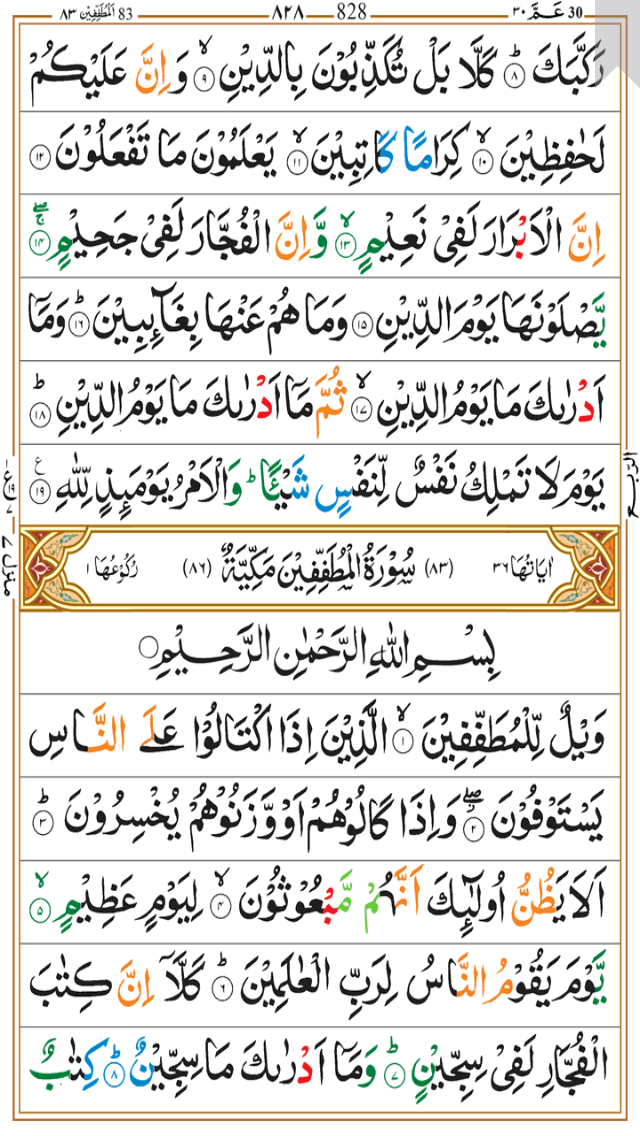 30 عَمَّ ٣٠ — ٨٢٨ — 828 — اَلْمُطَفِّفِيْن ٨٣ 83
رَكَّبَكَ ؕ‏ ﴿۸﴾ كَلَّا بَلْ تُكَذِّبُوْنَ بِالدِّيْنِۙ‏ ﴿۹﴾ وَاِنَّ عَلَيْكُمْ
لَحٰفِظِيْنَۙ‏ ﴿۱۰﴾ كِرَامًا كَاتِبِيْنَۙ‏ ﴿۱۱﴾ يَعْلَمُوْنَ مَا تَفْعَلُوْنَ‏ ﴿۱۲﴾
اِنَّ الْاَبْرَارَ لَفِىْ نَعِيْمٍۙ‏ ﴿۱۳﴾ وَّاِنَّ الْفُجَّارَ لَفِىْ جَحِيْمٍ ۖۚ‏ ﴿۱۴﴾
يَّصْلَوْنَهَا يَوْمَ الدِّيْنِ‏ ﴿۱۵﴾ وَمَا هُمْ عَنْهَا بِغَآٮِٕبِيْنَؕ‏ ﴿۱۶﴾ وَمَاۤ
اَدْرٰٮكَ مَا يَوْمُ الدِّيْنِۙ‏ ﴿۱۷﴾ ثُمَّ مَاۤ اَدْرٰٮكَ مَا يَوْمُ الدِّيْنِؕ‏ ﴿۱۸﴾
يَوْمَ لَا تَمْلِكُ نَفْسٌ لِّنَفْسٍ شَيْــًٔا‌ ؕ وَالْاَمْرُ يَوْمَٮِٕذٍ لِّلّٰهِ‏ ﴿۱۹﴾ ع
الربع
ع ١٩ ٧
منزل ٧
اٰيَاتُهَا ٣٦ (٨٣) سُوْرَةُ الْمُطَفِّفِيْنَ مَكِّيَّةٌ (٨٦) رُكُوْعُهَا ١
بِسْمِ اللّٰهِ الرَّحْمٰنِ الرَّحِيْمِ
وَيْلٌ لِّلْمُطَفِّفِيْنَۙ‏ ﴿۱﴾ الَّذِيْنَ اِذَا اكْتَالُوْا عَلَى النَّاسِ
يَسْتَوْفُوْنَ ۖ‏ ﴿۲﴾ وَاِذَا كَالُوْهُمْ اَوْ وَّزَنُوْهُمْ يُخْسِرُوْنَؕ‏ ﴿۳﴾
اَلَا يَظُنُّ اُولٰٓٮِٕكَ اَنَّهُمْ مَّبْعُوْثُوْنَۙ‏ ﴿۴﴾ لِيَوْمٍ عَظِيْمٍۙ‏ ﴿۵﴾
يَّوْمَ يَقُوْمُ النَّاسُ لِرَبِّ الْعٰلَمِيْنَؕ‏ ﴿۶﴾ كَلَّاۤ اِنَّ كِتٰبَ
الْفُجَّارِ لَفِىْ سِجِّيْنٍؕ‏ ﴿۷﴾ وَمَاۤ اَدْرٰٮكَ مَا سِجِّيْنٌؕ‏ ﴿۸﴾ كِتٰبٌ